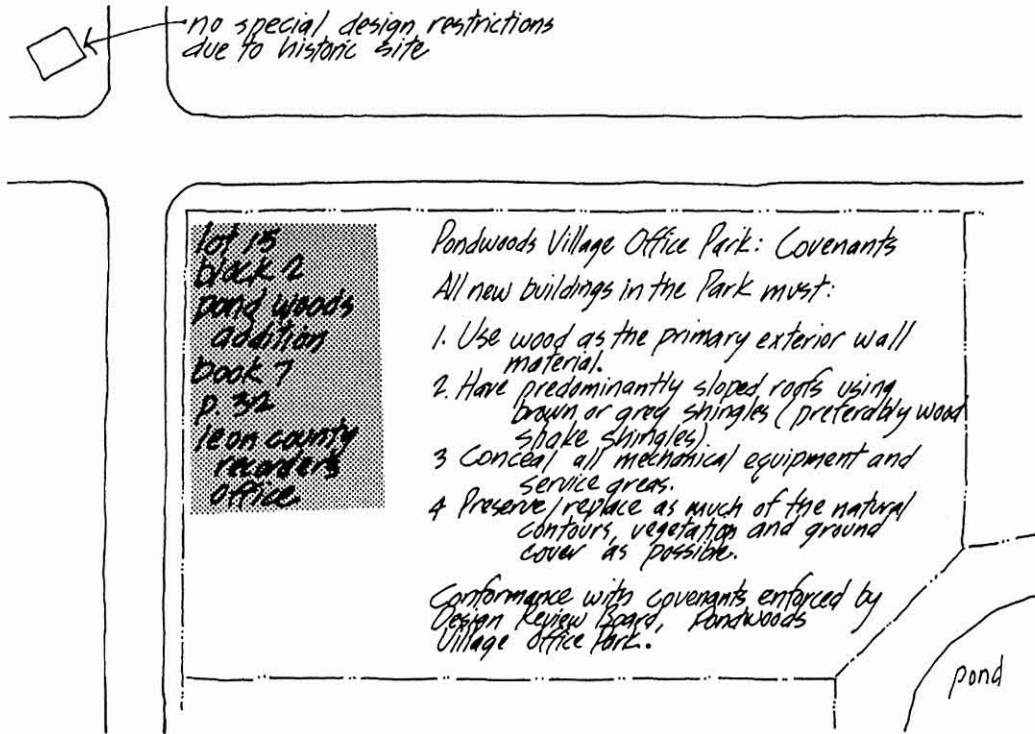 no special design restrictions
due to historic site
lot 15
block 2
pond woods
addition
book 7
p. 32
leon county
recorders
office
Pondwoods Village Office Park: Covenants
All new buildings in the Park must:
1. Use wood as the primary exterior wall
material.
2. Have predominantly sloped roofs using
brown or grey shingles (preferably wood
shake shingles)
3 Conceal all mechanical equipment and
service areas.
4 Preserve/replace as much of the natural
contours, vegetation and ground
cover as possible.
Conformance with covenants enforced by
Design Review Board, Pondwoods
Village Office Park.
pond